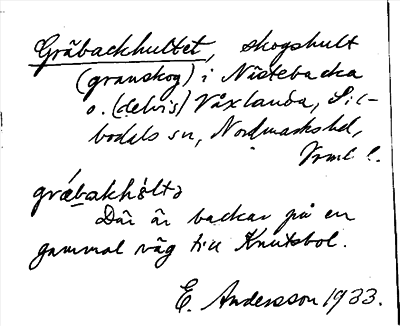 Gråbackhultet, skogshult
(granskog) i Nästebacka
o. (delvis) Växlanda, Sil-
bodals sn, Nordmarks hd,
Vrml l.
grǽbakhòltə
Där är backar på en
gammal väg till Knutsbol.
E. Andersson 1933.